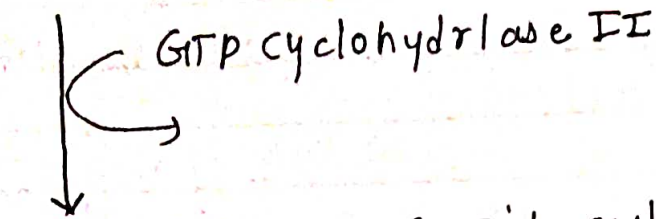 GTP cyclohydrlase II